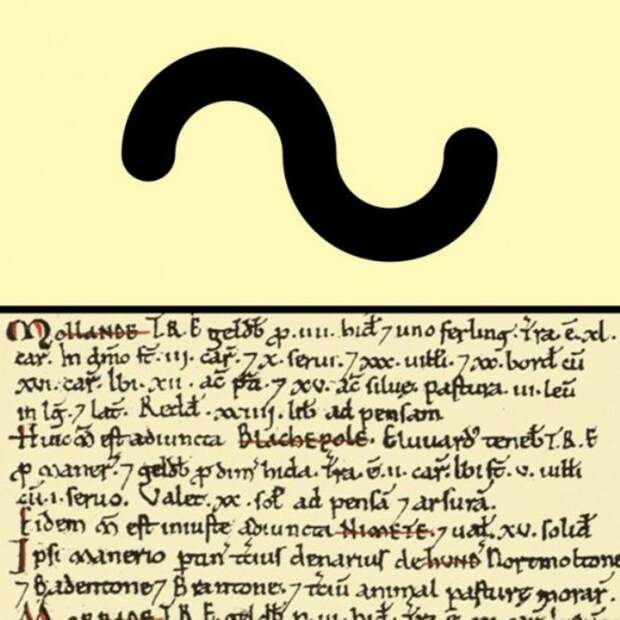 Mollande T.R.E geldb̄ ꝓ .iiii. hid̄ ⁊ uno ferling. Tr̄a. ē. xl.
car̄. In dn̄io st̄. iii. car̄. ⁊ x. serui. ⁊ xxx. uilli. ⁊ xx. bord̄ cū
xvi. car̄. Ibi. xii. ac̄ p̄ti. ⁊ xv. ac̄ siluę. Pastura. iii. leū
in lḡ. ⁊ lat̄. Redd̄. xxiiii. lib̄ ad pensam
Huic m̄ est adiuncta Blachepole. Eluuard' teneb̄ T.R.E
ꝓ maner̄. ⁊ geldb̄ ꝓ dim̄ hida. Tr̄a. ē. ii. car̄. Ibi st̄. v. uilli
cū. i. seruo. Valet. xx. sol̄ ad pensā ⁊ arsurā.
Eidem m̄ est iniuste adiuncta Nimete. ⁊ ual̄. xv. solid̄
Ipsi manerio ptin̄ t'cius denarius de hund̄ Nortmoltone
⁊ Badentone ⁊ Brantone, ⁊ t'ciū animal pasturę morar̄.